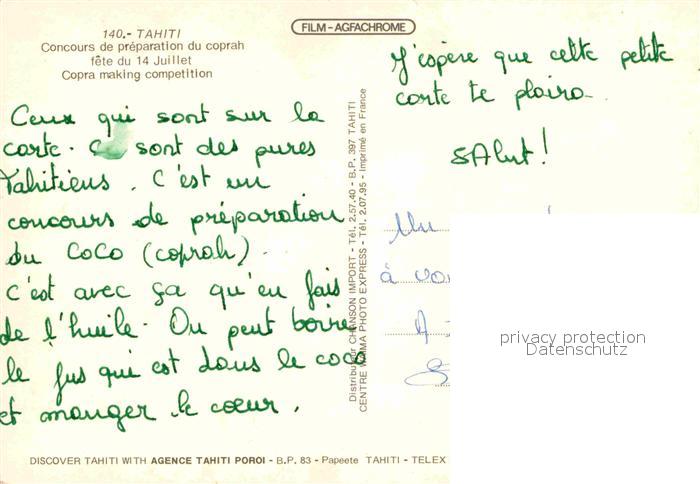 140.- TAHITI
Concours de préparation du coprah
fête du 14 Juillet
Copra making competition
FILM-AGFACHROME
Ceux qui sont sur la
carte. Ce sont des pures
Tahitiens. C'est un
concours de préparation
du COCO (coprah).
c'est avec ça qu'en fais
de l'huile. On peut boire
le jus qui est dans le coco
et manger le coeur.
J'espère que cette petite
carte te plaira.
SAlut!
Distributeur CHANSON IMPORT - Tél. 2.57.40 - B.P. 397 TAHITI
CENTRE WAMA PHOTO EXPRESS - Tél. 2.07.95 - Imprimé en France
à
privacy protection
Datenschutz
DISCOVER TAHITI WITH AGENCE TAHITI POROI - B.P. 83 - Papeete TAHITI - TELEX